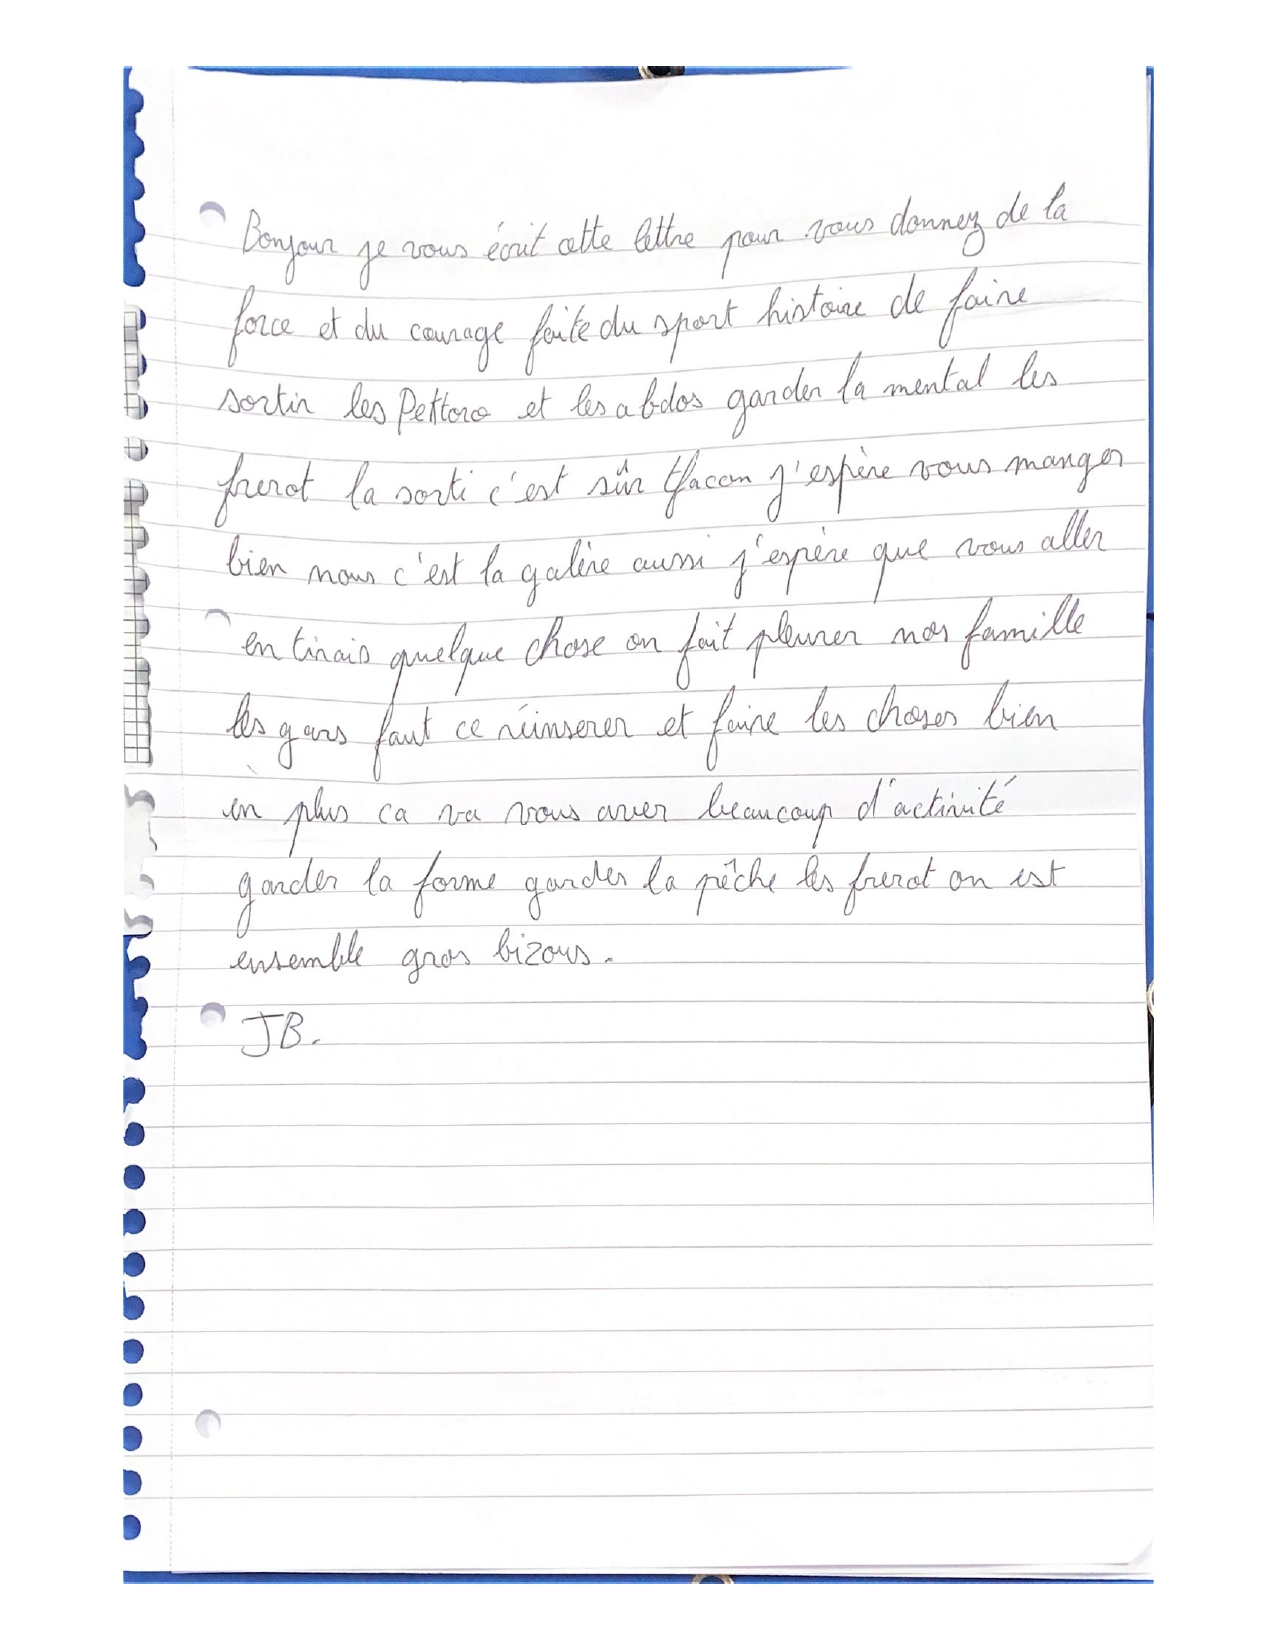 Bonjour je vous écrit cette lettre pour vous donnez de la
force et du courage faite du sport histoire de faire
sortir les Pettoro et les abdos garder la mental les
frerot la sorti c'est sûr tfacon j'espère vous manger
bien nous c'est la galère aussi j'espère que vous aller
en tirais quelque chose on fait pleurer nos famille
les gars faut ce réinserer et faire les choses bien
en plus ca va vous avez beaucoup d'activité
garder la forme garder la pêche les frerot on est
ensemble gros bizous.
JB.